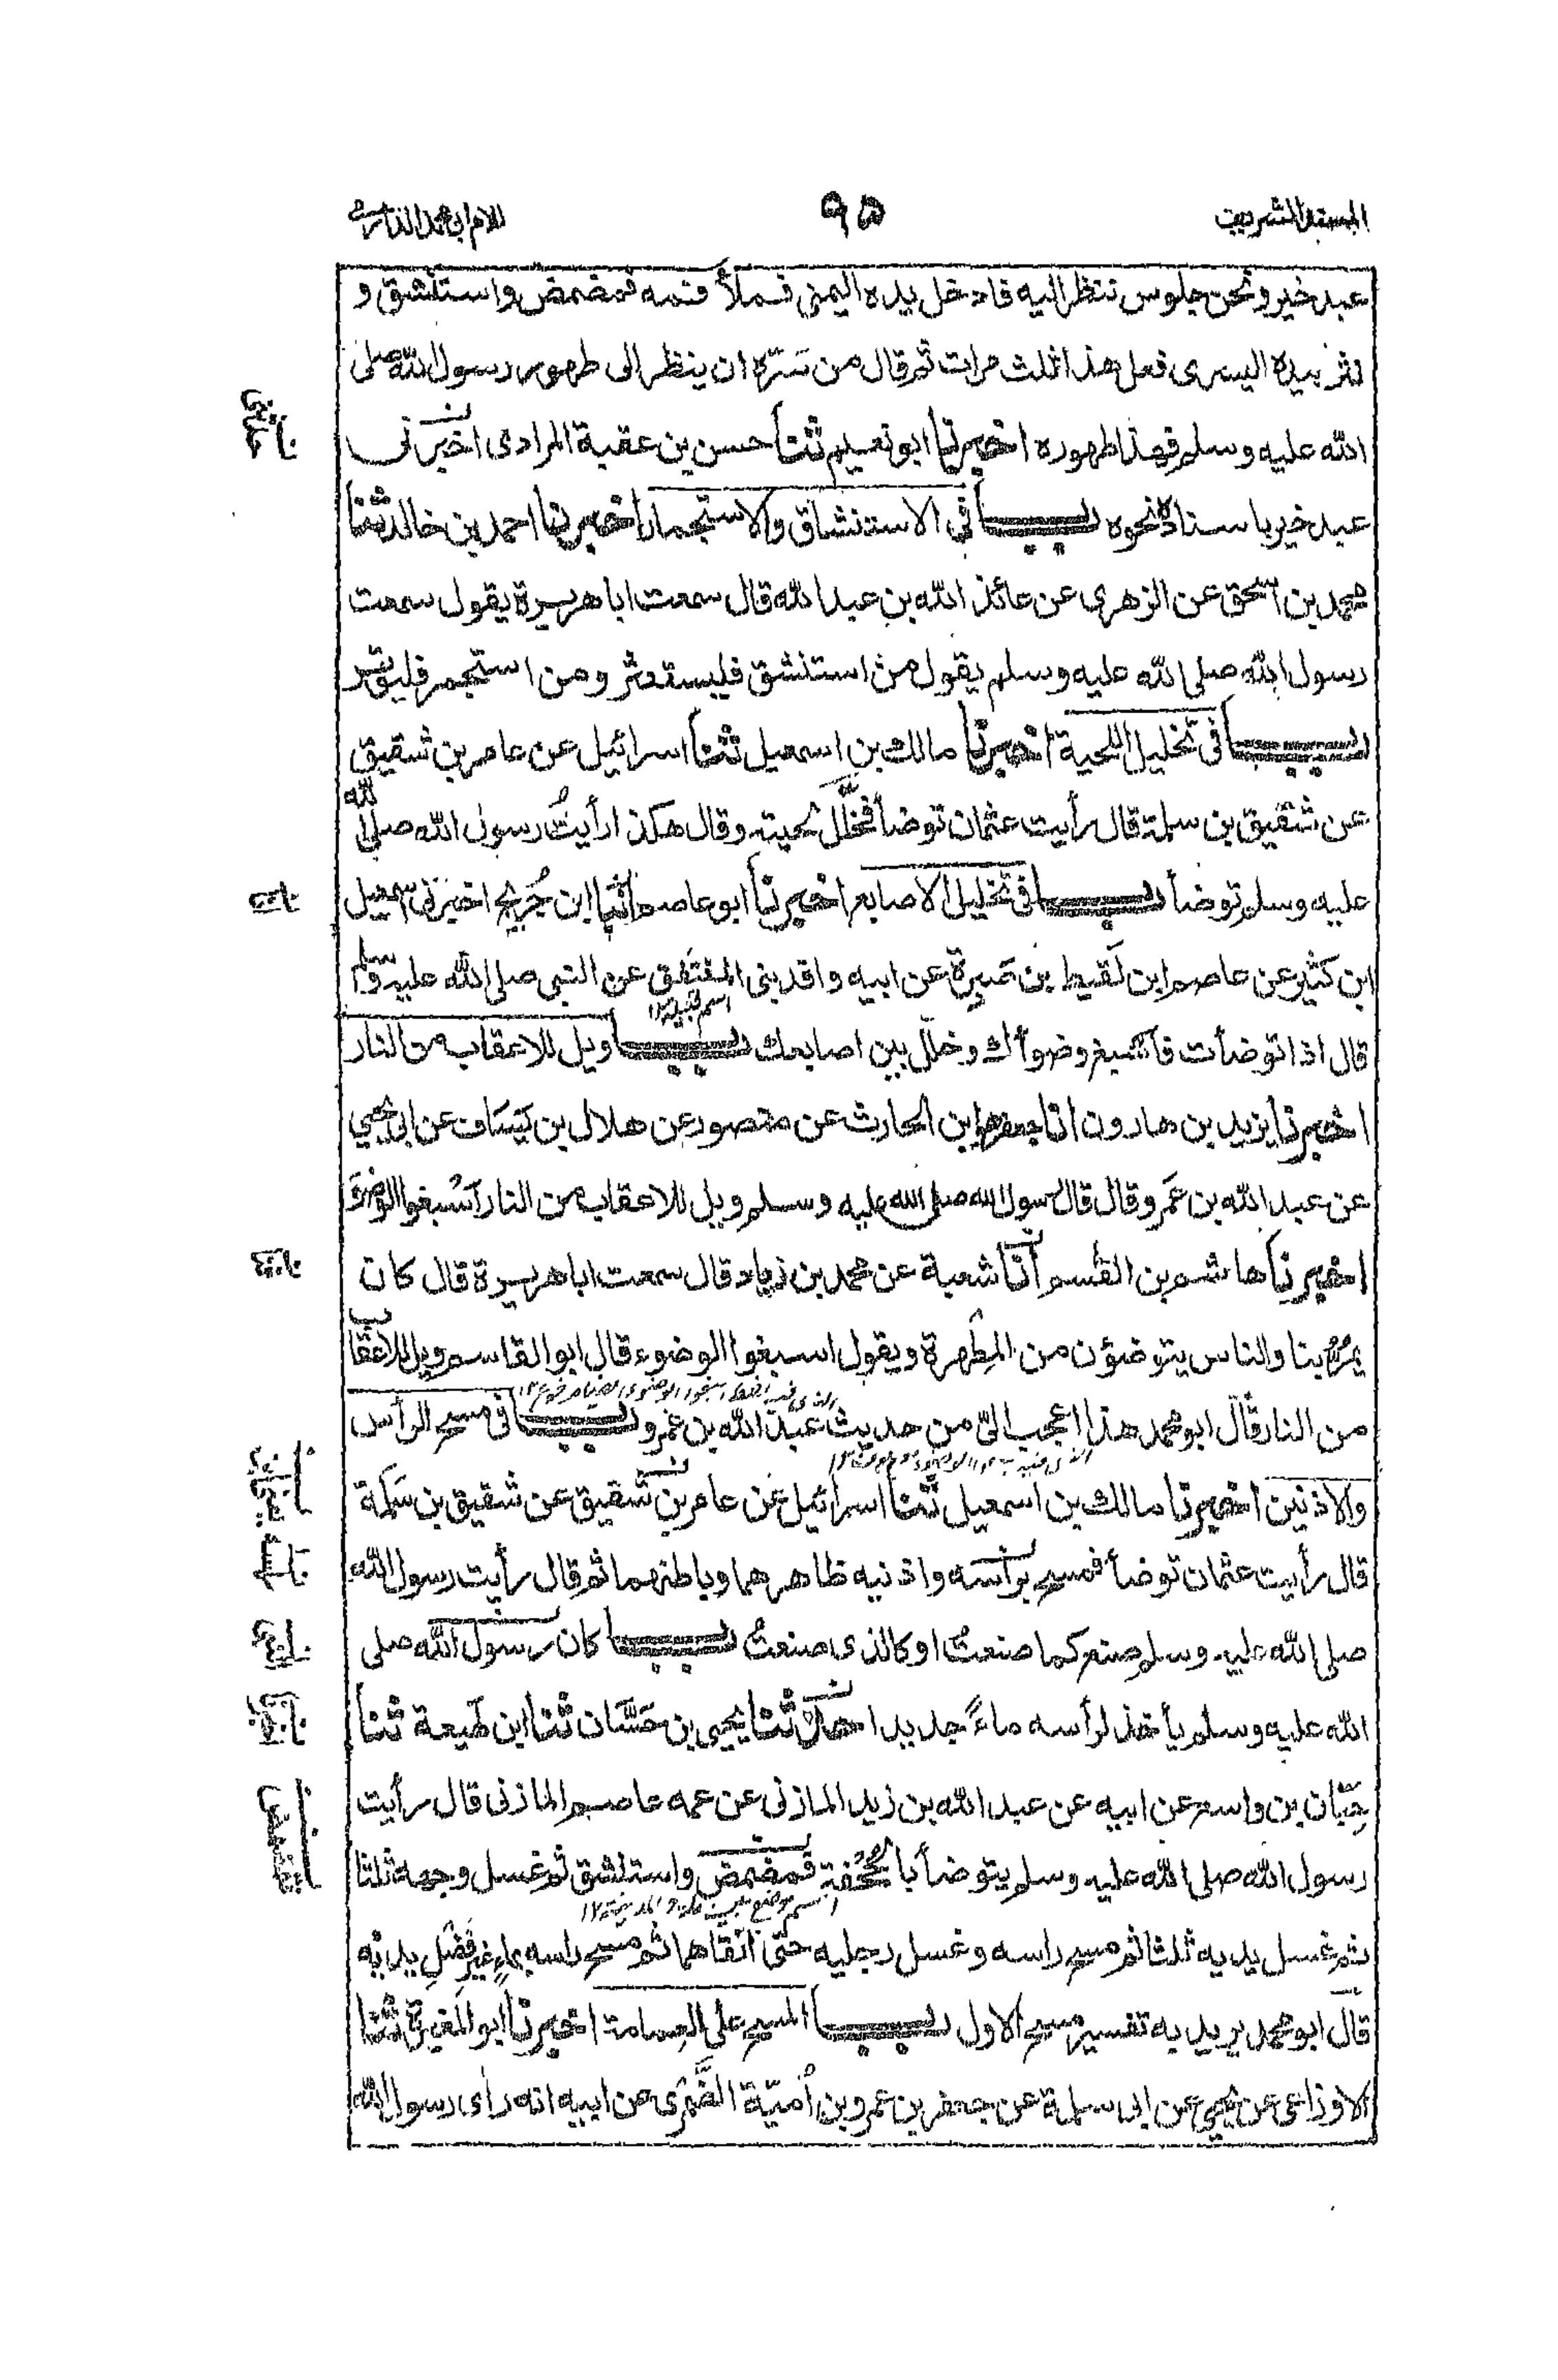 المسند الشريف
٩٥
للامام ابى محمد الدارمى
عبد خير ونحن جلوس ننظر اليه فادخل يده اليمنى فملأ فمه فمضمض واستنشق و
نثر بيده اليسرى فعل هذا ثلث مرات ثم قال من سَرّه ان ينظر الى طهور رسول الله صلى
الله عليه وسلم فهذا طهوره اخبرنا ابو نعيم ثنا حسن بن عقبة المرادى اخبرنى
عبد خير باسناده نحوه باب فى الاستنشاق والاستجمار اخبرنا احمد بن خالد ثنا
محمد بن اسحق عن الزهرى عن عائذ الله بن عبد الله قال سمعت ابا هريرة يقول سمعت
رسول الله صلى الله عليه وسلم يقول من استنشق فليستنثر ومن استجمر فليوتر
باب فى تخليل اللحية اخبرنا مالك بن اسمعيل ثنا اسرائيل عن عامر بن شقيق
عن شقيق بن سلمة قال رأيت عثمان توضأ فخلَّل لحيته وقال هكذا رأيتُ رسول الله صلى الله
عليه وسلم توضأ باب فى تخليل الاصابع اخبرنا ابو عاصم انا ابن جُريج اخبرنى اسمعيل
ابن كثير عن عاصم ابن لَقيط بن صَبِرة عن ابيه وافد بنى المنتفق عن النبى صلى الله عليه وسلم
اسم قبيلة ١٢
قال اذا توضأت فاَسبغ وضوأك وخلّل بين اصابعك باب ويل للاعقاب من النار
اخبرنا يزيد بن هارون انا جعفر هو ابن الحارث عن منصور عن هلال بن يَسَاف عن ابى يحيى
عن عبد الله بن عَمرو قال قال رسول الله صلى الله عليه وسلم ويل للاعقاب من النار اَسْبغوا الوضوءَ
اخبرنا هاشم بن القٰسم اَنا شعبة عن محمد بن زياد قال سمعت ابا هريرة قال كان
يمُرُّ بنا والناس يتوضؤن من المِطهرة ويقول اسبغوا الوضوء قال ابو القاسم ويل للاعقاب
من النار قال ابو محمد هذا اعجب الىّ من حديث عبد الله بن عَمرو باب فى مسح الرأس
والاذنين اخبرنا مالك بن اسمعيل ثنا اسرائيل عن عامر بن شقيق عن شقيق بن سَلَمة
قال رأيت عثمان توضأ فمسح برأسه واذنيه ظاهرهما وباطنهما ثم قال رأيت رسول الله
صلى الله عليه وسلم صنع كما صنعتُ او كالذى صنعتُ باب كان رسول الله صلى
الله عليه وسلم يأخذ لرأسه ماءً جديدا حدثنا يحيى بن حَسَّان ثنا ابن لهيعة ثنا
حَبّان بن واسع عن ابيه عن عبد الله بن زيد المازنى عن عمه عاصم المازنى قال رأيت
رسول الله صلى الله عليه وسلم يتوضأ بالجُحْفة فمضمض واستنشق ثم غسل وجهه ثلثا
اسم موضع بين مكة والمدينة ١٢
ثم غسل يديه ثلثا ثم مسح راسه وغسل رجليه حتّى اَنقاهما ثم مسح راسه بماءٍ غير فَضْلِ يديه
قال ابو محمد يريد به تفسير مسح الاول باب المسح على العمامة اخبرنا ابو المغيرة ثنا
الاوزاعى عن يحيى عن ابى سلمة عن جعفر بن عمرو بن اُميّة الضَّمْرى عن ابيه انه رأى رسول الله